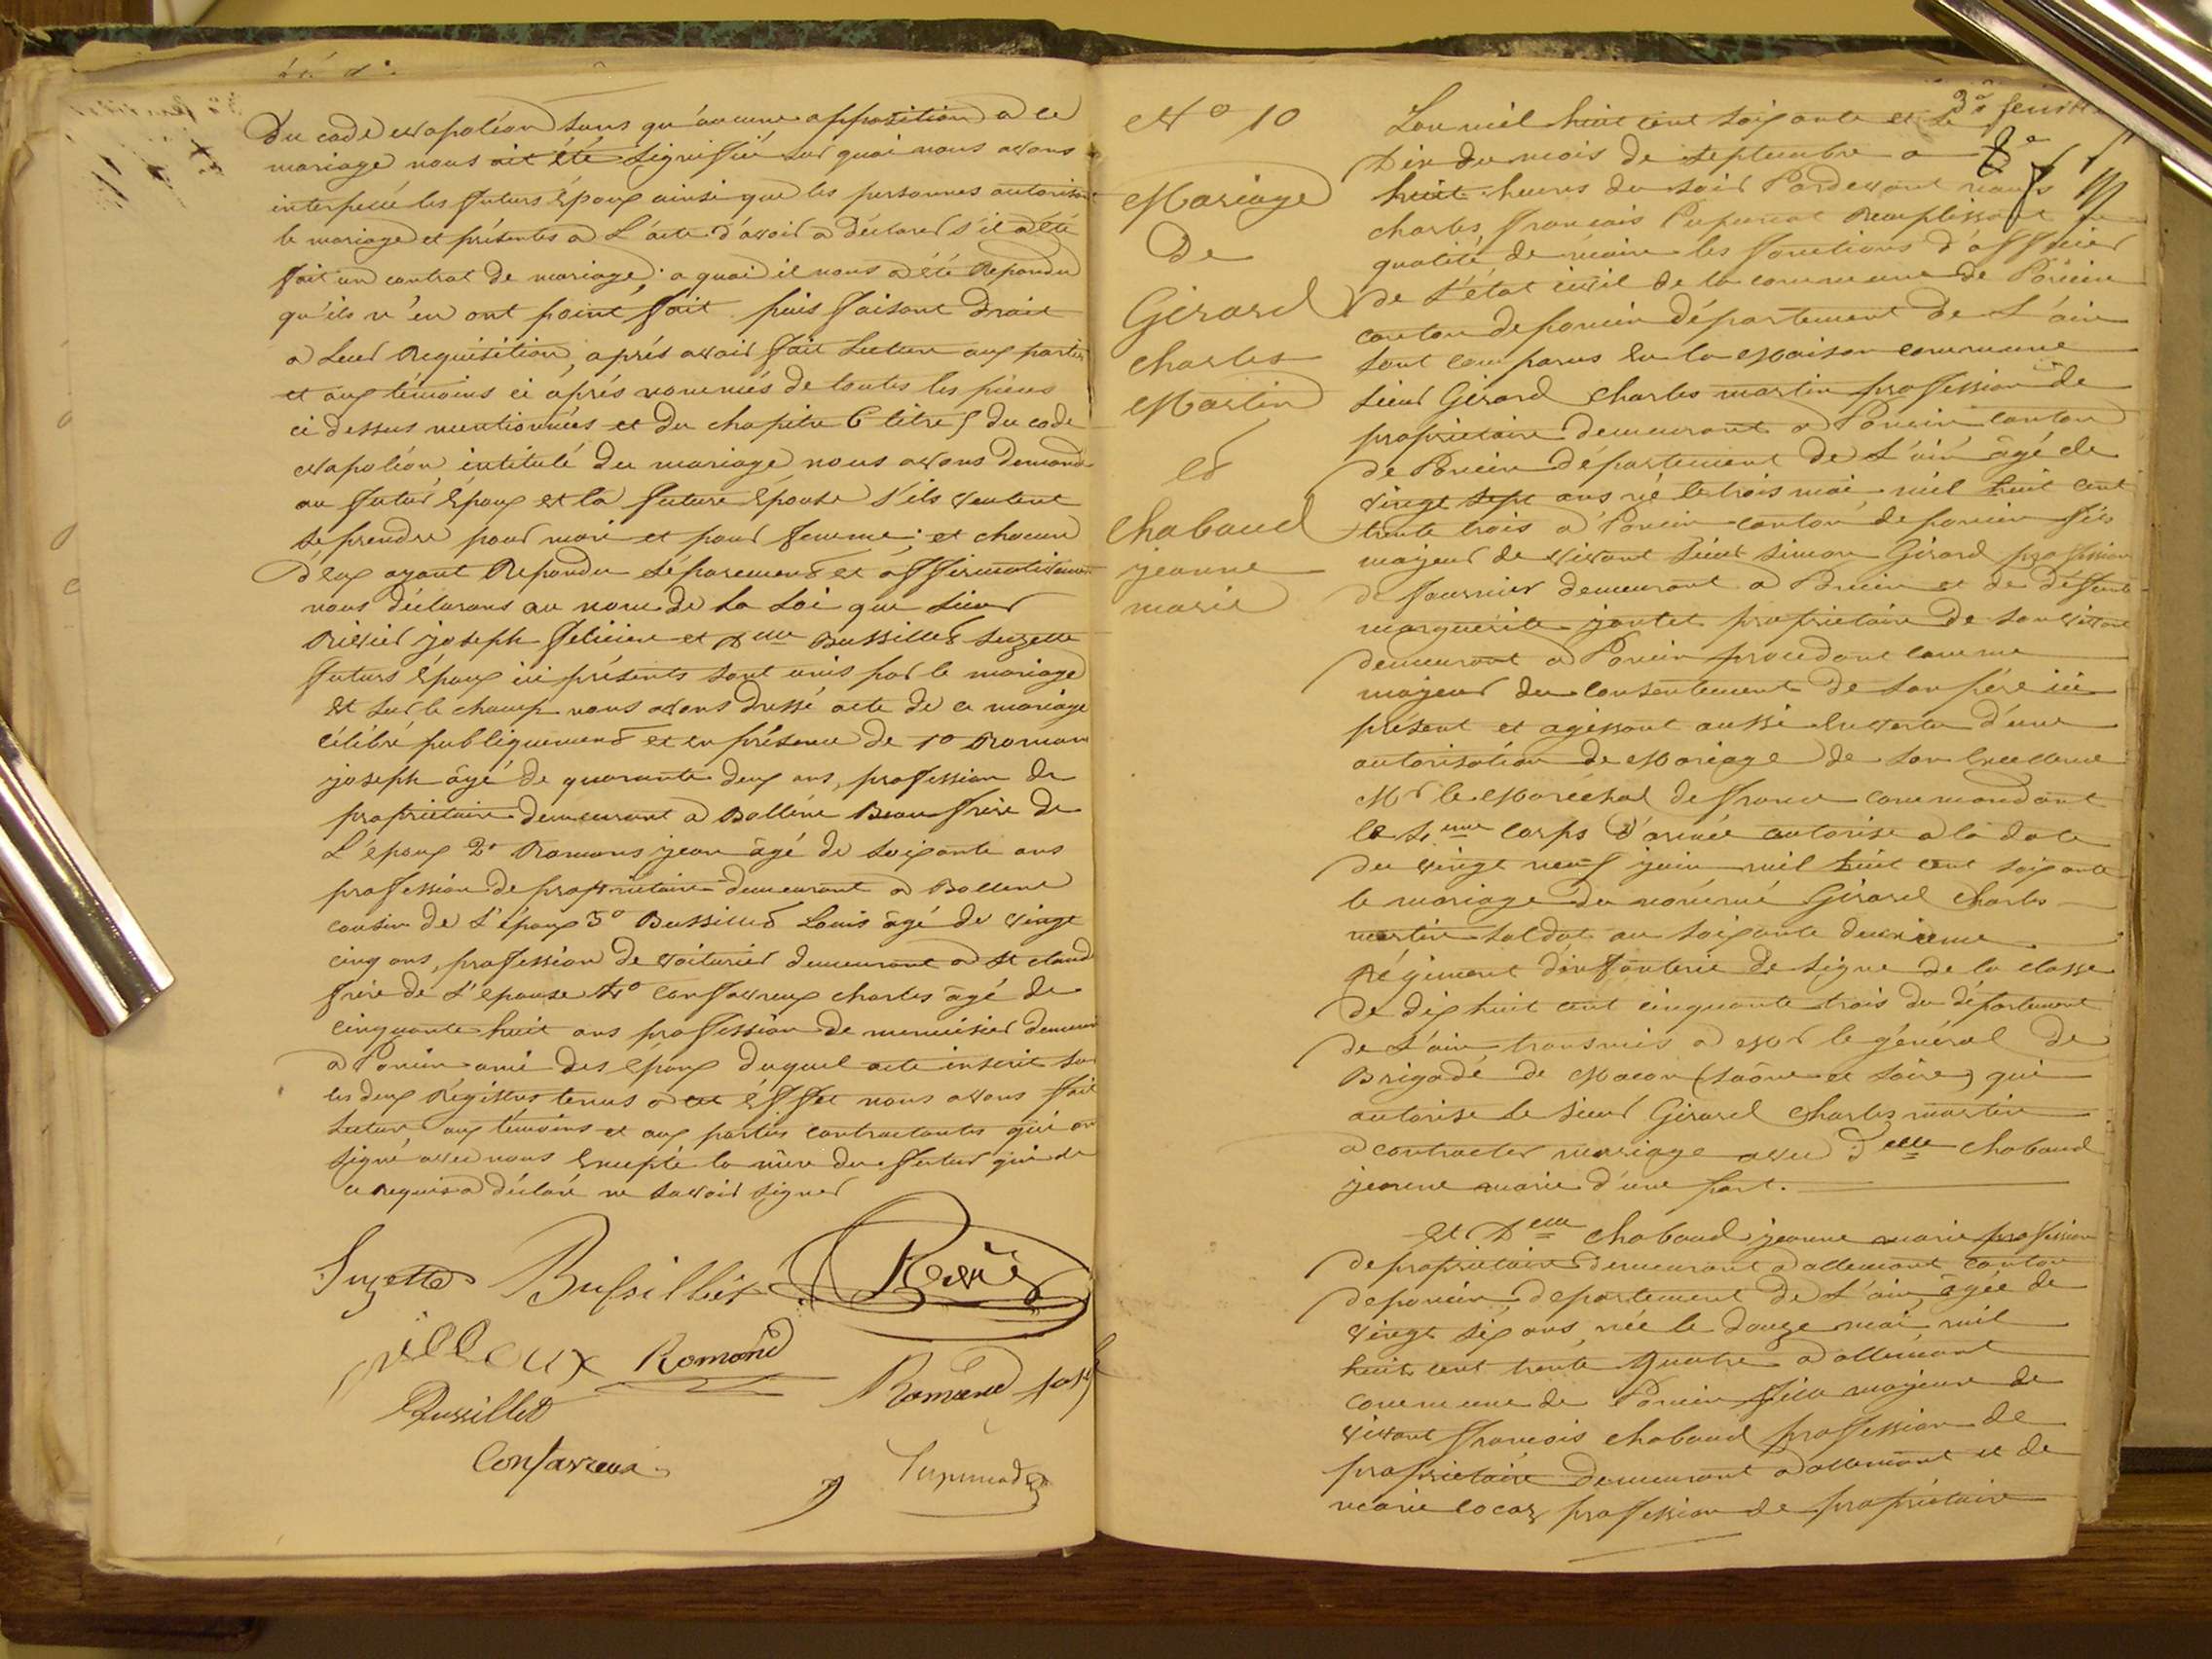 Du code Napoléon sans qu'aucune opposition a ce
mariage nous ait été signifiée sur quoi nous avons
interpellé les futurs Epoux ainsi que les personnes autorisant
le mariage et présentes a L'acte d'avoir a déclarer s'il a été
fait un contrat de mariage ; a quoi il nous a été Repondu
qu'ils n'en ont point fait puis faisant Droit
a Leur Requisition, aprés avoir fait Lecture aux parties
et aux témoins ci aprés nommés de toutes les pieces
ci dessus mentionnées et du chapitre 6 titre 5 du code
Napoléon intitulé du mariage nous avons demandé
au futur Epoux et la future Epouse s'ils veulent
se prendre pour mari et pour femme ; et chacun
d'eux ayant Repondu séparement et affirmativement
nous déclarons au nom de la Loi que sieur
Rivier joseph félicien et Dlle Bussillet Suzette
futurs Epoux ici présents sont unis par le mariage
et sur le champ nous avons dressé acte de ce mariage
célébré publiquement et en présence de 1o Roman
joseph âgé de quarante deux ans, profession de
propriétaire demeurant a Bollène Beau frère de
L'époux 2o Romans jean âgé de soixante ans
profession de propriétaire demeurant a Bollene
cousin de L'époux 3o Bussillet Louis âgé de vingt
cinq ans, profession de voiturier demeurant a St claude
frère de L'epouse 4o Confavreux charles âgé de
cinquante huit ans profession de menuisier demeurant
a Poncin ami des époux duquel acte inscrit sur
les deux Régistres tenus a cet Effet nous avons fait
Lecture aux témoins et aux parties contractantes qui ont
signé avec nous Excepté la mère du futur qui de
ce requise a déclaré ne savoir signer
Suzette Bussilliet
Romand
Bussillet Romand
Confavreux
No 10
Mariage
De
Girard
charles
Martin
et
Chabaud
jeanne
marie
3e feuillet
L'an mil huit cent soixante et Le
Dix du mois de septembre a
huit heures du soir Pardevant nous
charles françois Remplissant
qualité de maire les fonctions d'officier
de L'état civil de la commune de Poncin
canton de poncin département de L'ain
sont comparus en la Maison commune
sieur Girard Charles martin profession de
propriétaire demeurant a Poncin canton
de Poncin département de L'ain âgé de
vingt sept ans né le trois mai mil huit cent
trente trois a Poncin canton de poncin fils
majeur de vivant sieur simon Girard profession
de fournier demeurant a Poncin et de défunte
marguerite jantet propriétaire de son vivant
demeurant a Poncin procedant comme
majeur du consentement de son père ici
présent et agissant aussi En vertu d'une
autorisation de Mariage de son Excellence
Mr le Maréchal de france commandant
le 4eme corps d'armée autorise a la date
du vingt neuf juin mil huit cent soixante
le mariage du nommé Girard Charles
martin soldat au soixante deuxieme
Régiment d'infanterie de Ligne de la classe
de dix huit cent cinquante trois du département
de L'ain, transmis a Mr le général de
Brigade de Macon (saône et Loire) qui
autorise le sieur Girard Charles martin
a contracter mariage avec Delle Chabaud
jeanne marie d'une part.
Et Delle Chabaud jeanne marie profession
de propriétaire demeurant a allement canton
de poncin departement de L'ain, âgée de
vingt six ans, née le douze mai mil
huit cent trente quatre a allement
commune de Poncin fille majeure de
vivant françois chabaud profession de
propriétaire demeurant a allement et de
marie locaz profession de propriétaire